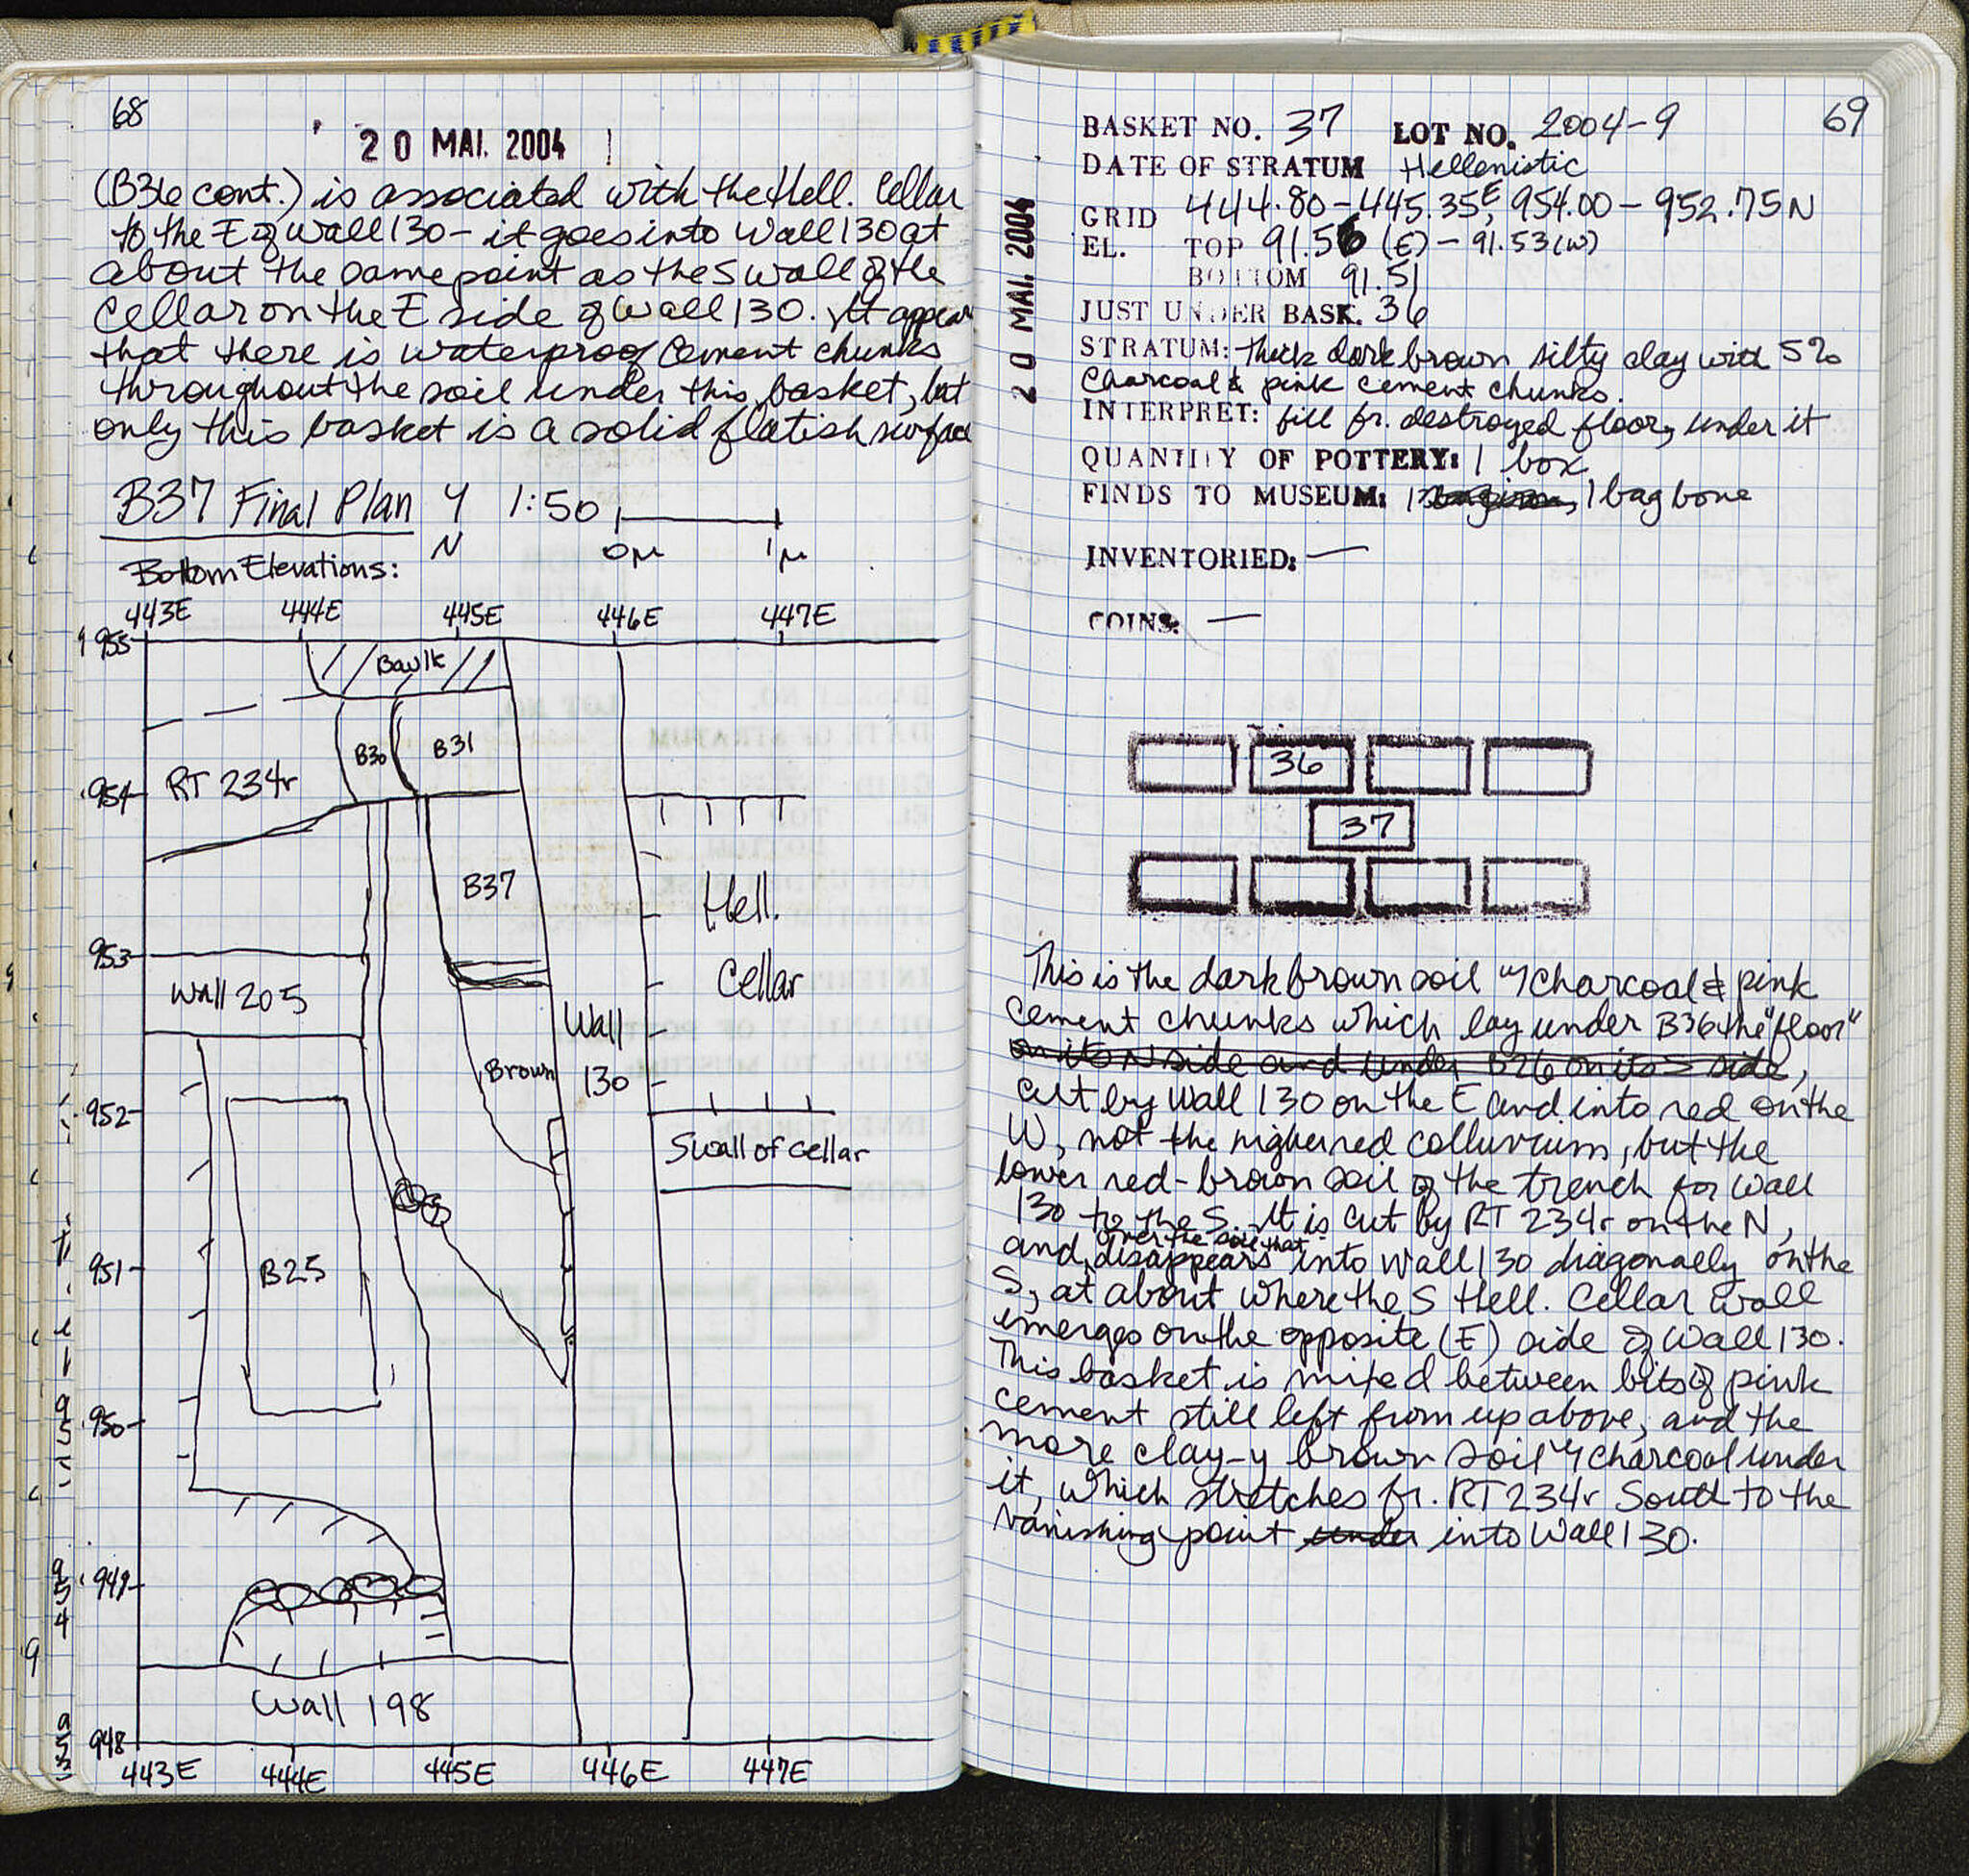 68
20 MAI. 2004
(B36 cont.) is associated with the Hell. Cellar
to the E of Wall 130 – it goes into Wall 130 at
about the same point as the S wall of the
Cellar on the E side of Wall 130. It appear
that there is waterproof cement chunks
throughout the soil under this basket, but
only this basket is a solid flatish surface
B37 Final Plan 1:50
N 0m 1m
Bottom Elevations:
443E 444E 445E 446E 447E
955
Baulk
B30 B31
RT 234r
954
B37
Hell.
Cellar
953
Wall 205
Wall
130
Brown
952
S wall of cellar
951
B25
950
949
Wall 198
948
443E 444E 445E 446E 447E
69
20 MAI. 2004
BASKET NO. 37 LOT NO. 2004-9
DATE OF STRATUM Hellenistic
GRID 444.80-445.35E, 954.00-952.75N
EL. TOP 91.56 (E) - 91.53 (W)
BOTTOM 91.51
JUST UNDER BASK. 36
STRATUM: Thick dark brown silty clay with 5%
charcoal & pink cement chunks.
INTERPRET: fill fr. destroyed floor, under it
QUANTITY OF POTTERY: 1 box
FINDS TO MUSEUM: 1 bag bone
INVENTORIED: —
COINS: —
36
37
This is the dark brown soil w/ charcoal & pink
cement chunks which lay under B36 the "floor"
on its N side and under B26 on its S side,
cut by Wall 130 on the E and into red on the
W, not the higher red colluvium, but the
lower red-brown soil of the trench for Wall
130 to the S. It is cut by RT 234r on the N,
over the soil that
and disappears into Wall 130 diagonally on the
S, at about where the S Hell. Cellar Wall
emerges on the opposite (E) side of Wall 130.
This basket is mixed between bits of pink
cement still left from up above, and the
more clay-y brown soil w/ charcoal under
it, which stretches fr. RT 234r South to the
vanishing point under into Wall 130.